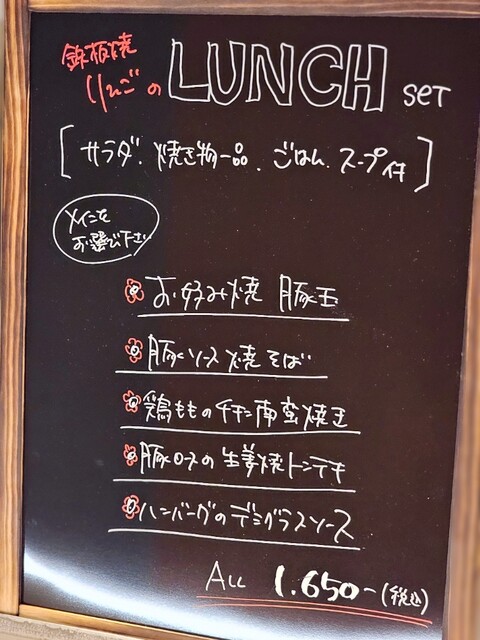 鉄板焼
りんごの LUNCH SET
[サラダ、焼き物一品、ごはん、スープ付]
メインを
お選び下さい
お好み焼 豚玉
豚ソース焼そば
鶏もものチキン南蛮焼き
豚ロースの生姜焼トンテキ
ハンバーグのデミグラスソース
ALL 1.650-(税込)